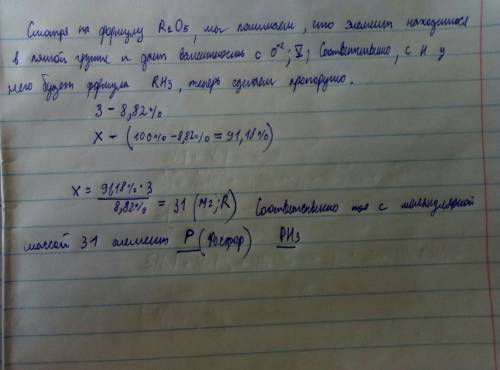 Смотря на формулу R2O5, мы понимаем, что элемент находится
в пятой группе и даёт валентность с O⁻²; V; Соответственно, с H у
него будет формула RH3, теперь сделаем пропорцию.
3 - 8,82%
X - (100% - 8,82% = 91,18%)
X = 91,18% · 3 / 8,82% = 31 (Mr; R) Соответственно то с молекулярной
массой 31 элемент P (Фосфор) PH3